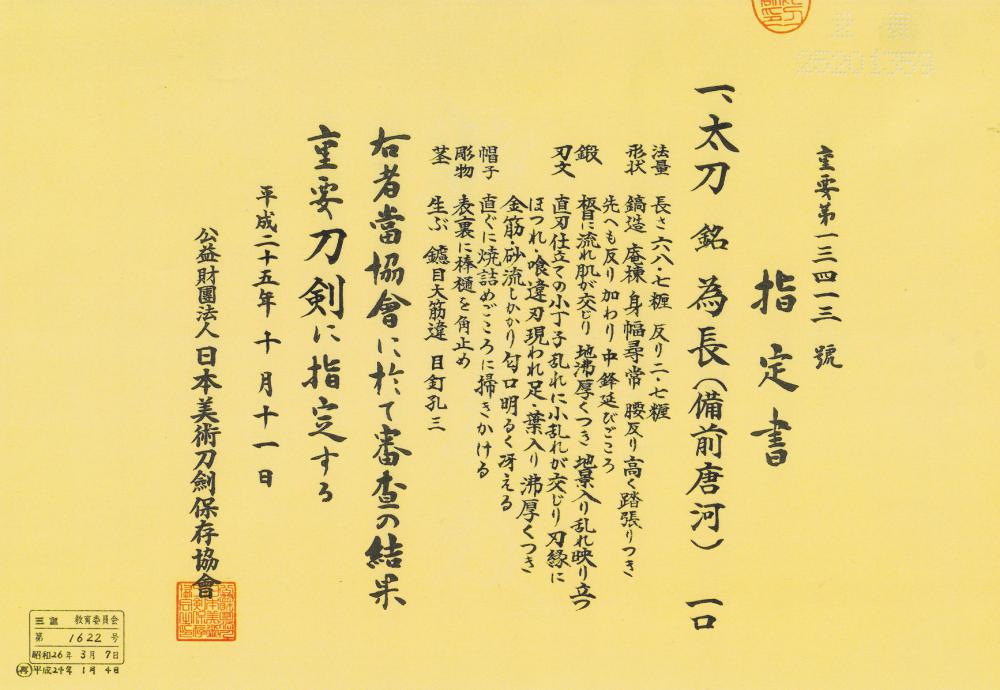 重要第一三四一三號
指定書
一、太刀 銘 為長(備前唐河) 一口
法量 長さ六八・七糎 反り二・七糎
形状 鎬造 庵棟 身幅尋常 腰反り高く踏張りつき
先へも反り加わり中鋒延びごころ
鍛 板目に流れ肌が交じり 地沸厚くつき 地景入り乱れ映り立つ
刃文 直刃仕立ての小丁子乱れに小乱れが交じり 刃縁に
ほつれ・喰違刃現われ足・葉入り沸厚くつき
金筋・砂流しかかり匂口明るく冴える
帽子 直ぐに焼詰めごころに掃きかける
彫物 表裏に棒樋を角止め
茎 生ぶ 鑢目大筋違 目釘孔三
右者當協會に於て審査の結果
重要刀剣に指定する
平成二十五年 十月十一日
公益財團法人日本美術刀劍保存協會
三重 教育委員会
第 1622 号
昭和26年 3月 7日
(再)平成24年 1月 4日